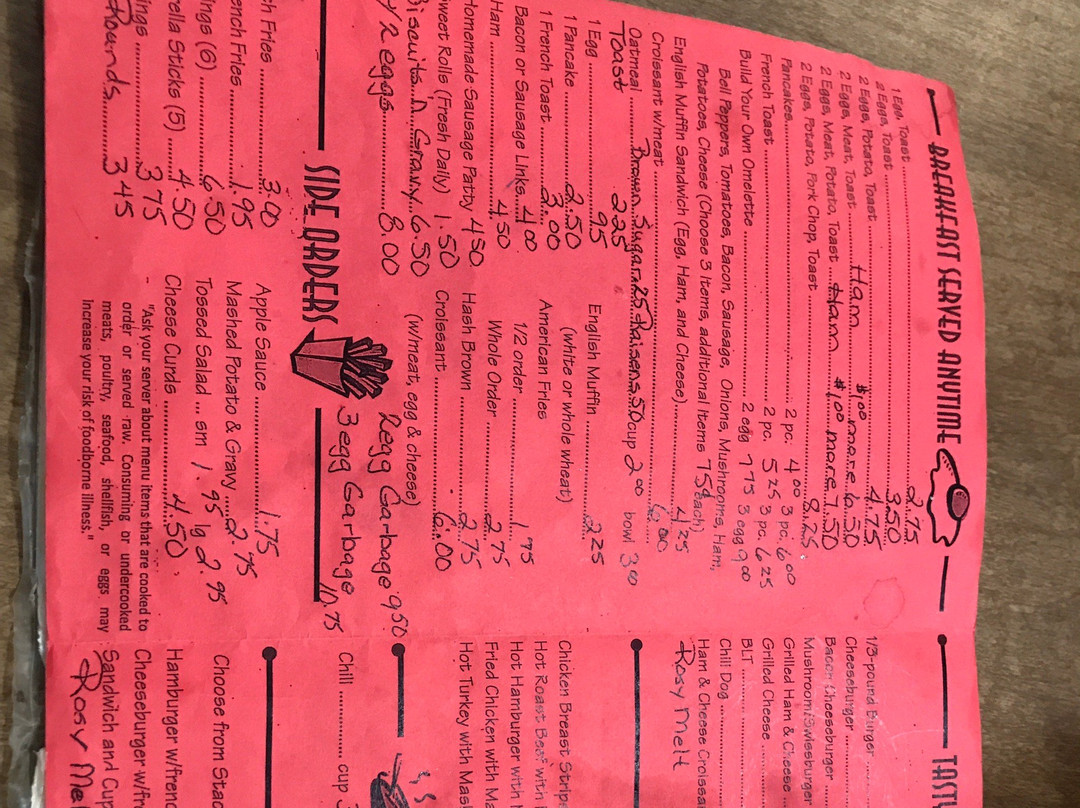 BREAKFAST SERVED ANYTIME
1 Egg, Toast ........ 2.75
2 Eggs, Toast ........ 3.50
2 Eggs, Potato, Toast ........ 4.75
2 Eggs, Meat, Toast ........ Ham $1.00 more 6.50
2 Eggs, Meat, Potato, Toast ........ Ham $1.00 more 7.50
2 Eggs, Potato, Pork Chop, Toast ........ 8.25
Pancakes ........ 2 pc. 4.00 3 pc. 6.00
French Toast ........ 2 pc. 5.25 3 pc. 6.25
Build Your Own Omelette ........ 2 egg 7.75 3 egg 9.00
Bell Peppers, Tomatoes, Bacon, Sausage, Onions, Mushrooms, Ham,
Potatoes, Cheese (Choose 3 Items, additional Items 75¢ each)
English Muffin Sandwich (Egg, Ham, and Cheese) ........ 4.25
Croissant w/meat ........ 6.00
Oatmeal ........ Brown Sugar .25 Raisens .50 cup 2.00 bowl 3.00
Toast 2.25
1 Egg ........ .95
1 Pancake ........ 2.50
1 French Toast ........ 3.00
Bacon or Sausage Links ........ 4.00
Ham ........ 4.50
Homemade Sausage Patty 4.50
weet Rolls (Fresh Daily) 1.50
Biscuits n Gravy 6.50
y 2 eggs ........ 8.00
English Muffin ........ 2.25
(white or whole wheat)
American Fries
1/2 order ........ 1.75
Whole Order ........ 2.75
Hash Brown ........ 2.75
Croissant ........ 6.00
(w/meat, egg & cheese)
2 egg Garbage 9.50
3 egg Garbage 10.75
SIDE ORDERS
ch Fries ........ 3.00
ench Fries ........ 1.95
ings (6) ........ 6.50
rella Sticks (5) ........ 4.50
ings ........ 3.75
Rounds ........ 3.45
Apple Sauce ........ 1.75
Mashed Potato & Gravy ........ 2.75
Tossed Salad ... sm 1.95 lg 2.95
Cheese Curds ........ 4.50
- "Ask your server about menu items that are cooked to
order or served raw. Consuming or undercooked
meats, poultry, seafood, shellfish, or eggs may
increase your risk of foodborne illness."
TASTY
1/3-pound Burger ........
Cheeseburger ........
Bacon Cheeseburger ........
Mushroom/Swissburger
Grilled Ham & Cheese ....
Grilled Cheese ........
BLT ........
Chili Dog ........
Ham & Cheese Croissa
Rosy Melt
Chicken Breast Strips
Hot Roast Beef with
Hot Hamburger with
Fried Chicken with Ma
Hot Turkey with Mas
Chili ........ cup 3
Choose from Stac
Hamburger w/frenc
Cheeseburger w/fr
Sandwich and Cup
Rosy Me